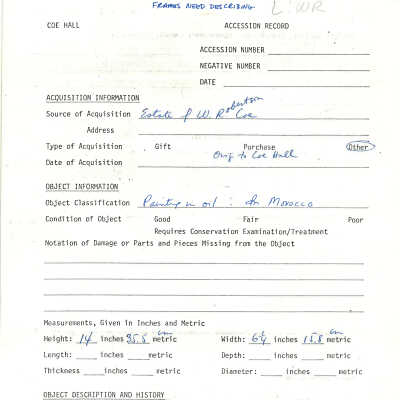 FRAMES NEED DESCRIBING L: WR
COE HALL ACCESSION RECORD
ACCESSION NUMBER
NEGATIVE NUMBER
DATE
ACQUISITION INFORMATION
Source of Acquisition Estate of W. Robertson Coe
Address
Type of Acquisition Gift Purchase Other
Orig. to Coe Hall
Date of Acquisition
OBJECT INFORMATION
Object Classification Painting in oil : In Morocco
Condition of Object Good Fair Poor
Requires Conservation Examination/Treatment
Notation of Damage or Parts and Pieces Missing from the Object
Measurements, Given in Inches and Metric
Height: 14 inches 35.5 cm metric Width: inches 15.8 cm metric
Length: inches metric Depth: inches metric
Thickness inches metric Diameter: inches metric
OBJECT DESCRIPTION AND HISTORY